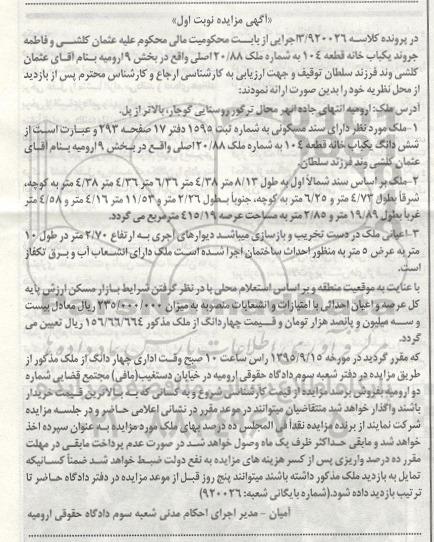 «آگهی مزایده نوبت اول»
در پرونده کلاسه ۳/۹۲۰۰۲۶اجرایی از بابت محکومیت مالی محکوم علیه عثمان کلشـی و فاطمه
جروند یکباب خانه قطعه ۱۰۴ به شماره ملک ۲۰/۸۸اصلی واقع در بخش ۹ارومیه بنـام آقای عثمان
کلشی وند فرزند سلطان توقیف و جهت ارزیابی به کارشناسی ارجاع و کارشناس محترم پس از بازدید
از محل نظریه خود را بدین صورت ارائه نمودند:
آدرس ملک: ارومیه انتهای جاده انهر محال ترگور روستایی گوجار، بالاتر از پل.
۱-ملک مورد نظر دارای سند مسکونی به شماره ثبت ۱۵۹۵ دفتر ۱۷ صفحـه ۲۹۳ و عبارت اسـت از
شش دانگ یکباب خانه قطعه ۱۰۴ به شماره ملک ۲۰/۸۸اصلی واقع در بـخش ۹ارومیه بنـام آقای
عثمان کلش وند فرزند سلطان.
۲-ملک بر اساس سند شمالاً اول به طول ۸/۱۳ متر ۴/۳۸ متر ۶/۳۶ متر ۴/۳۶ متر ۴/۳۸ متر به کوچه،
شرقاً بطول ۴/۷۳ متر و ۶/۲۵ متر به کوچه، جنوباً بـطول ۲/۲۶ متر و ۱۱/۵۳ متر ۴/۱۶ متر و ۴/۵۸ متر
غرباً بطول ۱۹/۸۹ متر و ۲/۸۵ متر به مساحت عرصه ۴۱۵/۱۹ مترمربع می گردد.
۳-اعیانی ملک در دست تخریب و بازسازی میباشـد دیوارهای آجری بـه ارتفاع ۲/۷۰ متر در طول ۱۰
متر به عرض ۵ متر به منظور احداث ساختمان اجرا شـده اسـت ملک دارای انشـعاب آب و برق تکفاز
است.
با عنایت به موقعیت منطقه و بر اساس استعلام محلی با در نظر گرفتن شرایط بـازار مسکن ارزش پایه
کل عرصه و اعیان احداثی با امتیازات و انشعابات منصوبه به میزان ۲۳۵/۰۰۰/۰۰۰ ریال معادل بیست
و سـه میلیون و پانصد هزار تومان و قیمت چهار دانگ از ملک مذکور ۱۵۶/۶۶/۶۶۴ ریال تعیین می
گردد.
که مقرر گردید در مورخه ۱۳۹۵/۹/۱۵ راس ساعت ۱۰ صبح وقت اداری چهار دانگ از ملک مذکور از
طریق مزایده در دفتر شعبه سوم دادگاه حقوقی ارومیه در خیابان دستغیب(مافی) مجتمع قضایی شماره
دو ارومیه بفروش برسد مزایده از قیمت کارشناسی شروع و به کسانی که بـه بـالاترین قیمت خریدار
باشند واگذار خواهد شد متقاضیان میتوانند در موعد مقرر در نشانی اعلامی حاضر و در جلسه مزایده
شرکت نمایند از برنده مزایده نقداً فی المجلس ده درصد بهای ملک مورد مزایده به عنوان سپرده اخذ
خواهد شد و مابقی حداکثر ظرف یک ماه وصول خواهد شـد در صورت عدم پرداخت مابقی در مهلت
مقرر ده درصد واریزی پس از کسر هزینه های مزایده به نفع دولت ضبـط خواهد شـد ضمناً کسـانیکه
تمایل به بازدید ملک مذکور داشته باشند میتوانند پنج روز قبـل از موعد مزایده در دفتر دادگاه حاضر تا
ترتیب بازدید داده شود.(شماره بایگانی شعبه: ۹۲۰۰۲۶)
آمیان - مدیر اجرای احکام مدنی شعبه سوم دادگاه حقوقی ارومیه